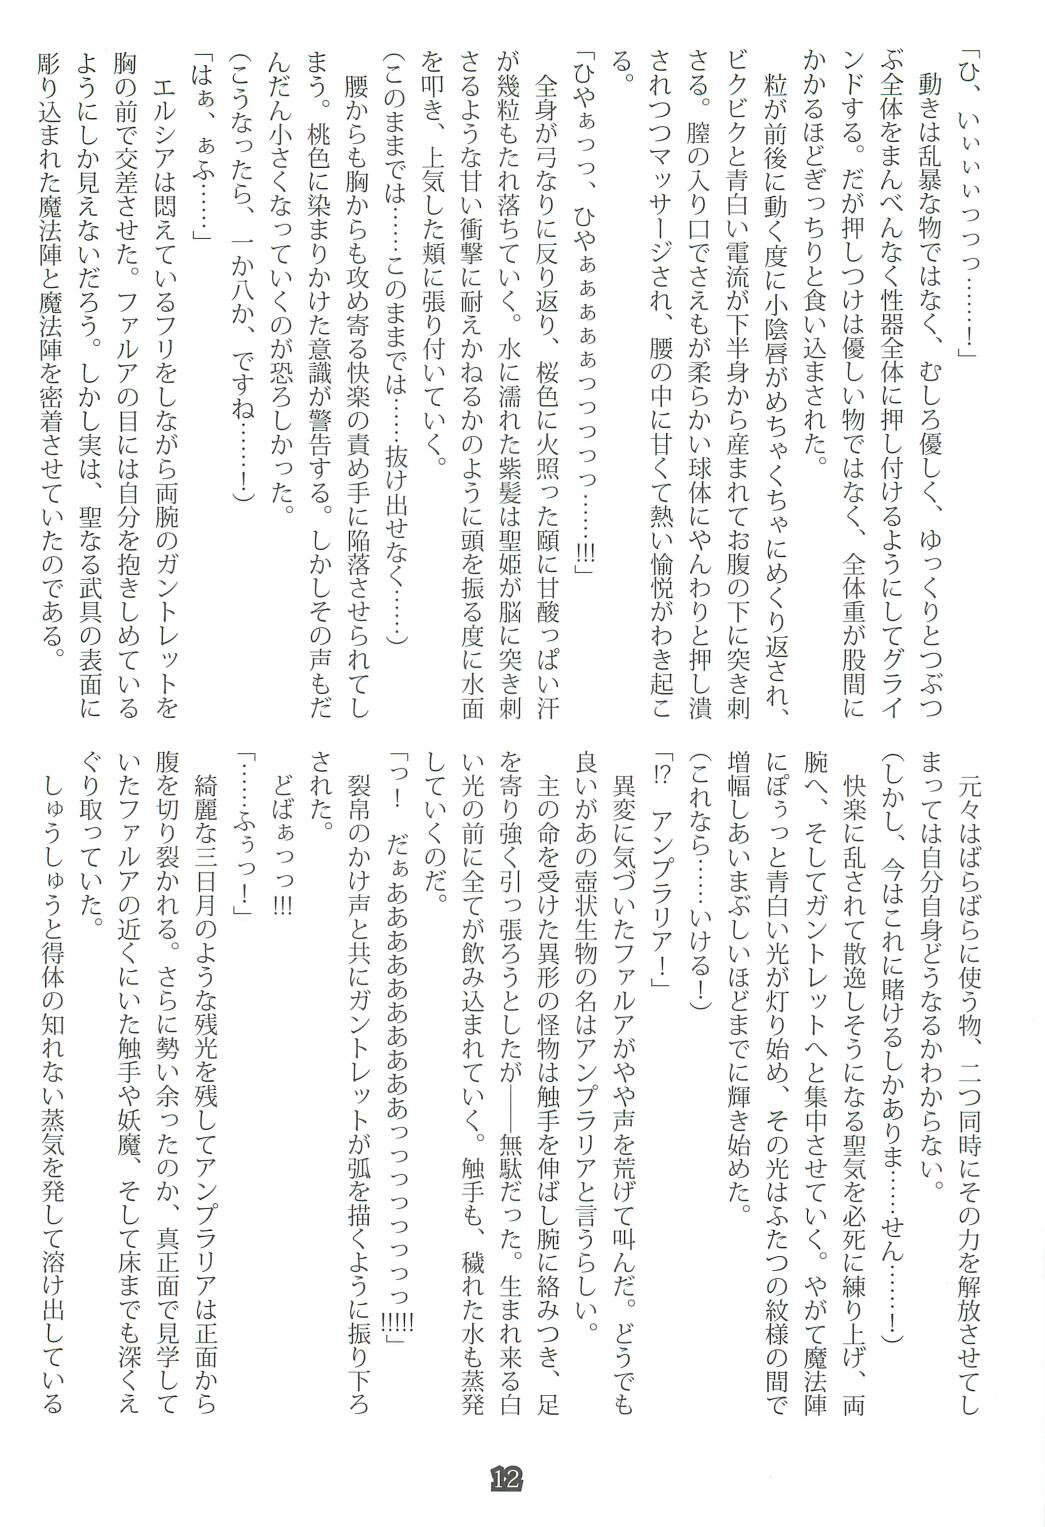 「ひ、いぃぃぃっっっ……！」
　動きは乱暴な物ではなく、むしろ優しく、ゆっくりとつぶつ
ぶ全体をまんべんなく性器全体に押し付けるようにしてグライ
ンドする。だが押しつけは優しい物ではなく、全体重が股間に
かかるほどぎっちりと食い込まされた。
　粒が前後に動く度に小陰唇がめちゃくちゃにめくり返され、
ビクビクと青白い電流が下半身から産まれてお腹の下に突き刺
さる。膣の入り口でさえもが柔らかい球体にやんわりと押し潰
されつつマッサージされ、腰の中に甘くて熱い愉悦がわき起こ
る。
「ひやぁっっ、ひやぁぁぁぁぁっっっっっ……!!!」
　全身が弓なりに反り返り、桜色に火照った頤に甘酸っぱい汗
が幾粒もたれ落ちていく。水に濡れた紫髪は聖姫が脳に突き刺
さるような甘い衝撃に耐えかねるかのように頭を振る度に水面
を叩き、上気した頬に張り付いていく。
（このままでは……このままでは……抜け出せなく……）
　腰からも胸からも攻め寄る快楽の責め手に陥落させられてし
まう。桃色に染まりかけた意識が警告する。しかしその声もだ
んだん小さくなっていくのが恐ろしかった。
（こうなったら、一か八か、ですね……！）
「はぁ、ぁふ……」
　エルシアは悶えているフリをしながら両腕のガントレットを
胸の前で交差させた。ファルアの目には自分を抱きしめている
ようにしか見えないだろう。しかし実は、聖なる武具の表面に
彫り込まれた魔法陣と魔法陣を密着させていたのである。
　元々はばらばらに使う物、二つ同時にその力を解放させてし
まっては自分自身どうなるかわからない。
（しかし、今はこれに賭けるしかありま……せん……！）
　快楽に乱されて散逸しそうになる聖気を必死に練り上げ、両
腕へ、そしてガントレットへと集中させていく。やがて魔法陣
にぽぅっと青白い光が灯り始め、その光はふたつの紋様の間で
増幅しあいまぶしいほどまでに輝き始めた。
（これなら……いける！）
「!?　アンプラリア！」
　異変に気づいたファルアがやや声を荒げて叫んだ。どうでも
良いがあの壺状生物の名はアンプラリアと言うらしい。
　主の命を受けた異形の怪物は触手を伸ばし腕に絡みつき、足
を寄り強く引っ張ろうとしたが――無駄だった。生まれ来る白
い光の前に全てが飲み込まれていく。触手も、穢れた水も蒸発
していくのだ。
「っ！　だぁああああああああああっっっっっっっ!!!!!」
　裂帛のかけ声と共にガントレットが弧を描くように振り下ろ
された。
　どばぁっっ!!!
「……ふぅっ！」
　綺麗な三日月のような残光を残してアンプラリアは正面から
腹を切り裂かれる。さらに勢い余ったのか、真正面で見学して
いたファルアの近くにいた触手や妖魔、そして床までも深くえ
ぐり取っていた。
　しゅうしゅうと得体の知れない蒸気を発して溶け出している
12